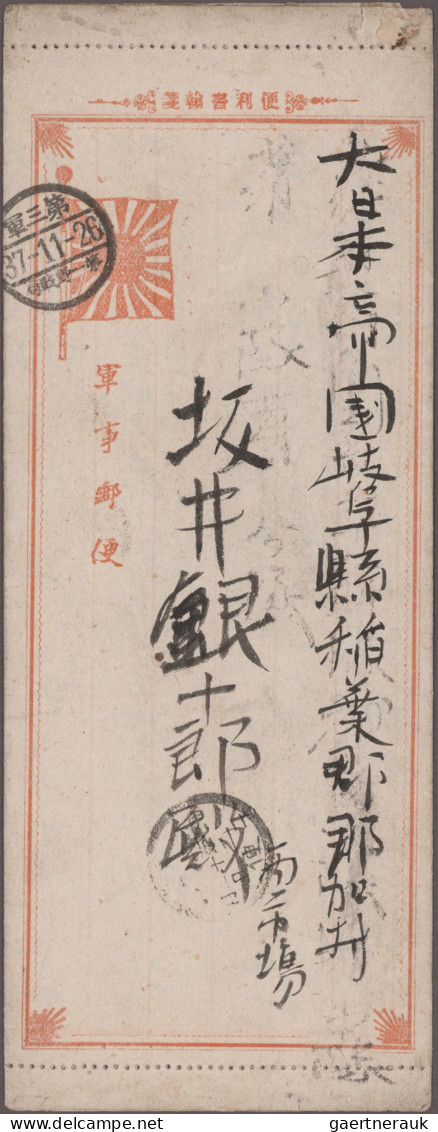 便利書翰箋
大日本帝国岐阜縣稲葉郡那加村
西市場
坂井銀十郎殿
軍事郵便
第三軍
37-11-26
第一野戦局
gaertnerauk / DELCAMPE.NET